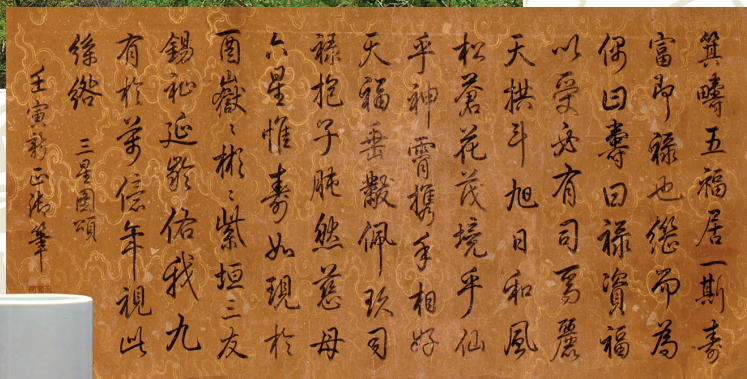 箕疇五福居一斯壽
富即祿也繼而為
偶曰壽曰祿資福
以受必有司焉麗
天拱斗旭日和風
松蒼花茂境乎仙
乎神霄携手相好
天福垂黻佩玖司
祿抱子肫然慈母
六星惟壽如現於
酉嶽〻彬〻紫垣三友
錫祉延齡佑我九
有於萬億年視此
綹 三星圖頌
壬寅新正御筆